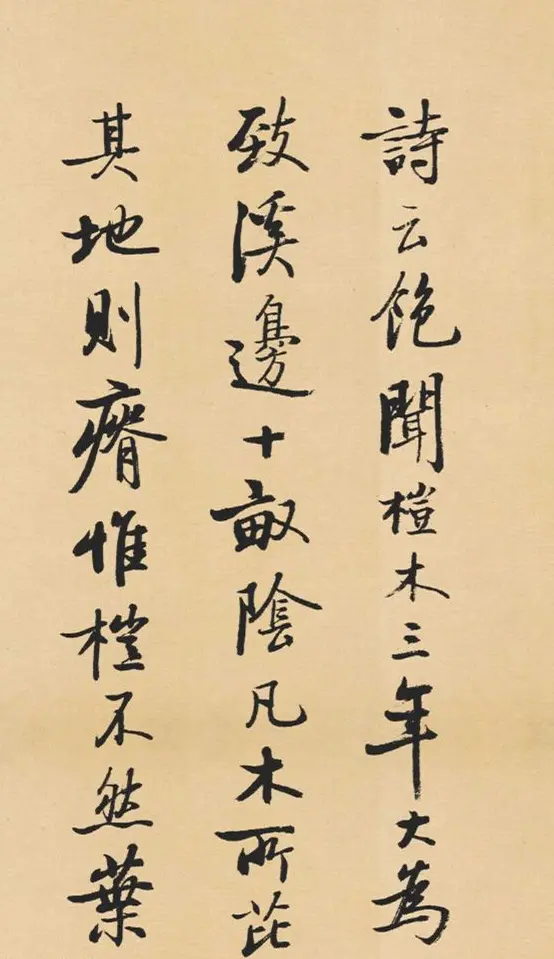 詩云飽聞榿木三年大為
致溪邊十畝陰凡木所芘
其地則瘠惟榿不然葉